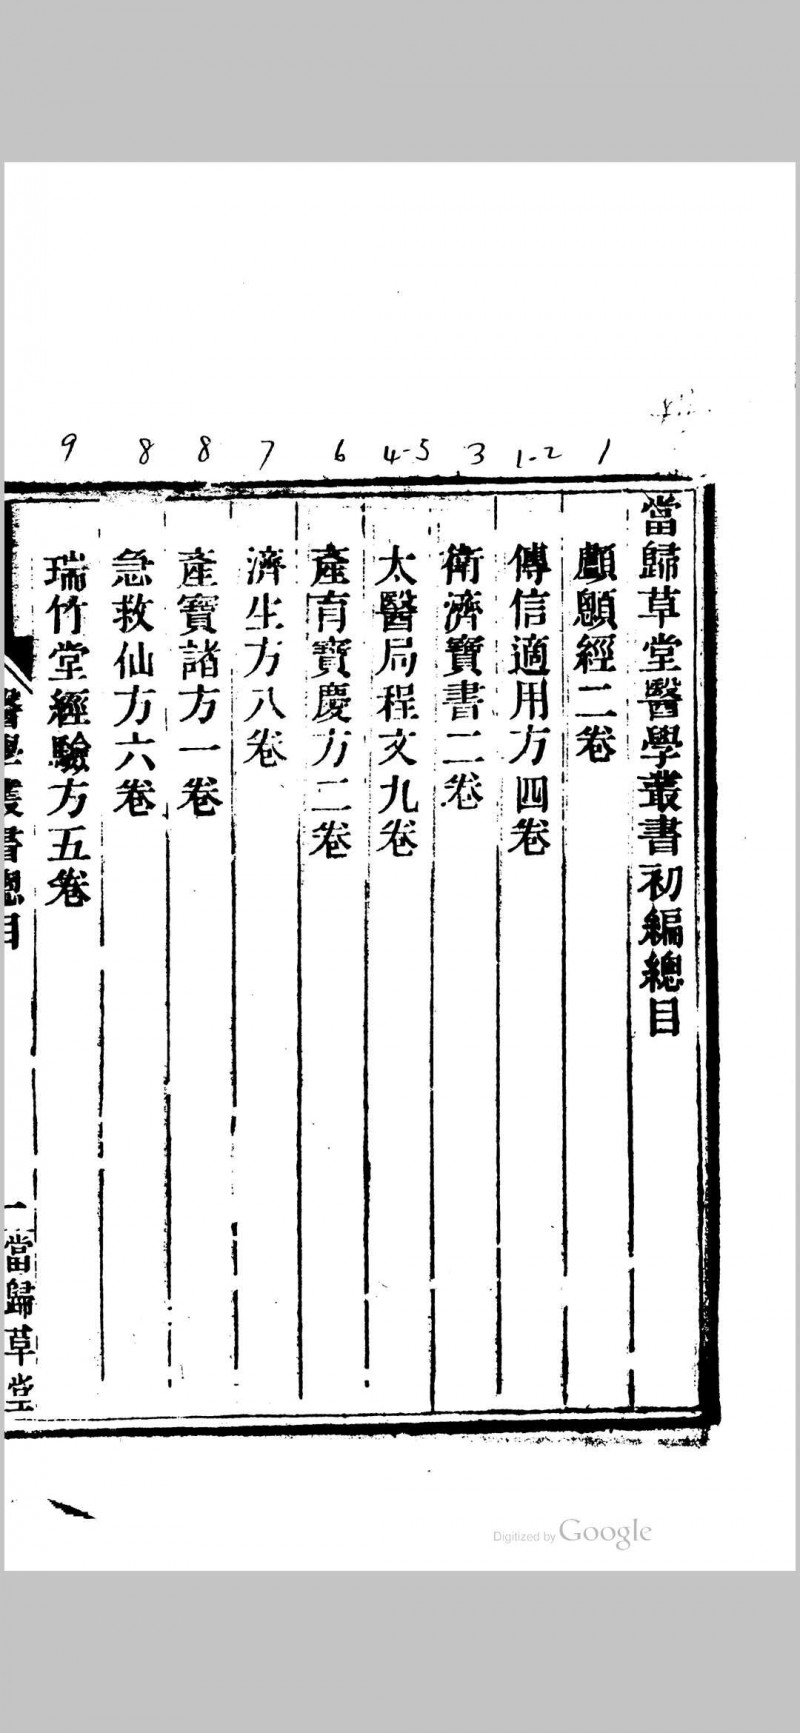 9 8 8 7 6 4-5 3 1-2 1
當歸草堂醫學叢書初編總目
顱顖經二卷
傳信適用方四卷
衛濟寶書二卷
太醫局程文九卷
產育寶慶方二卷
濟生方八卷
產寶諸方一卷
急救仙方六卷
瑞竹堂經驗方五卷
醫學叢書總目
一
當歸草堂
Digitized by Google